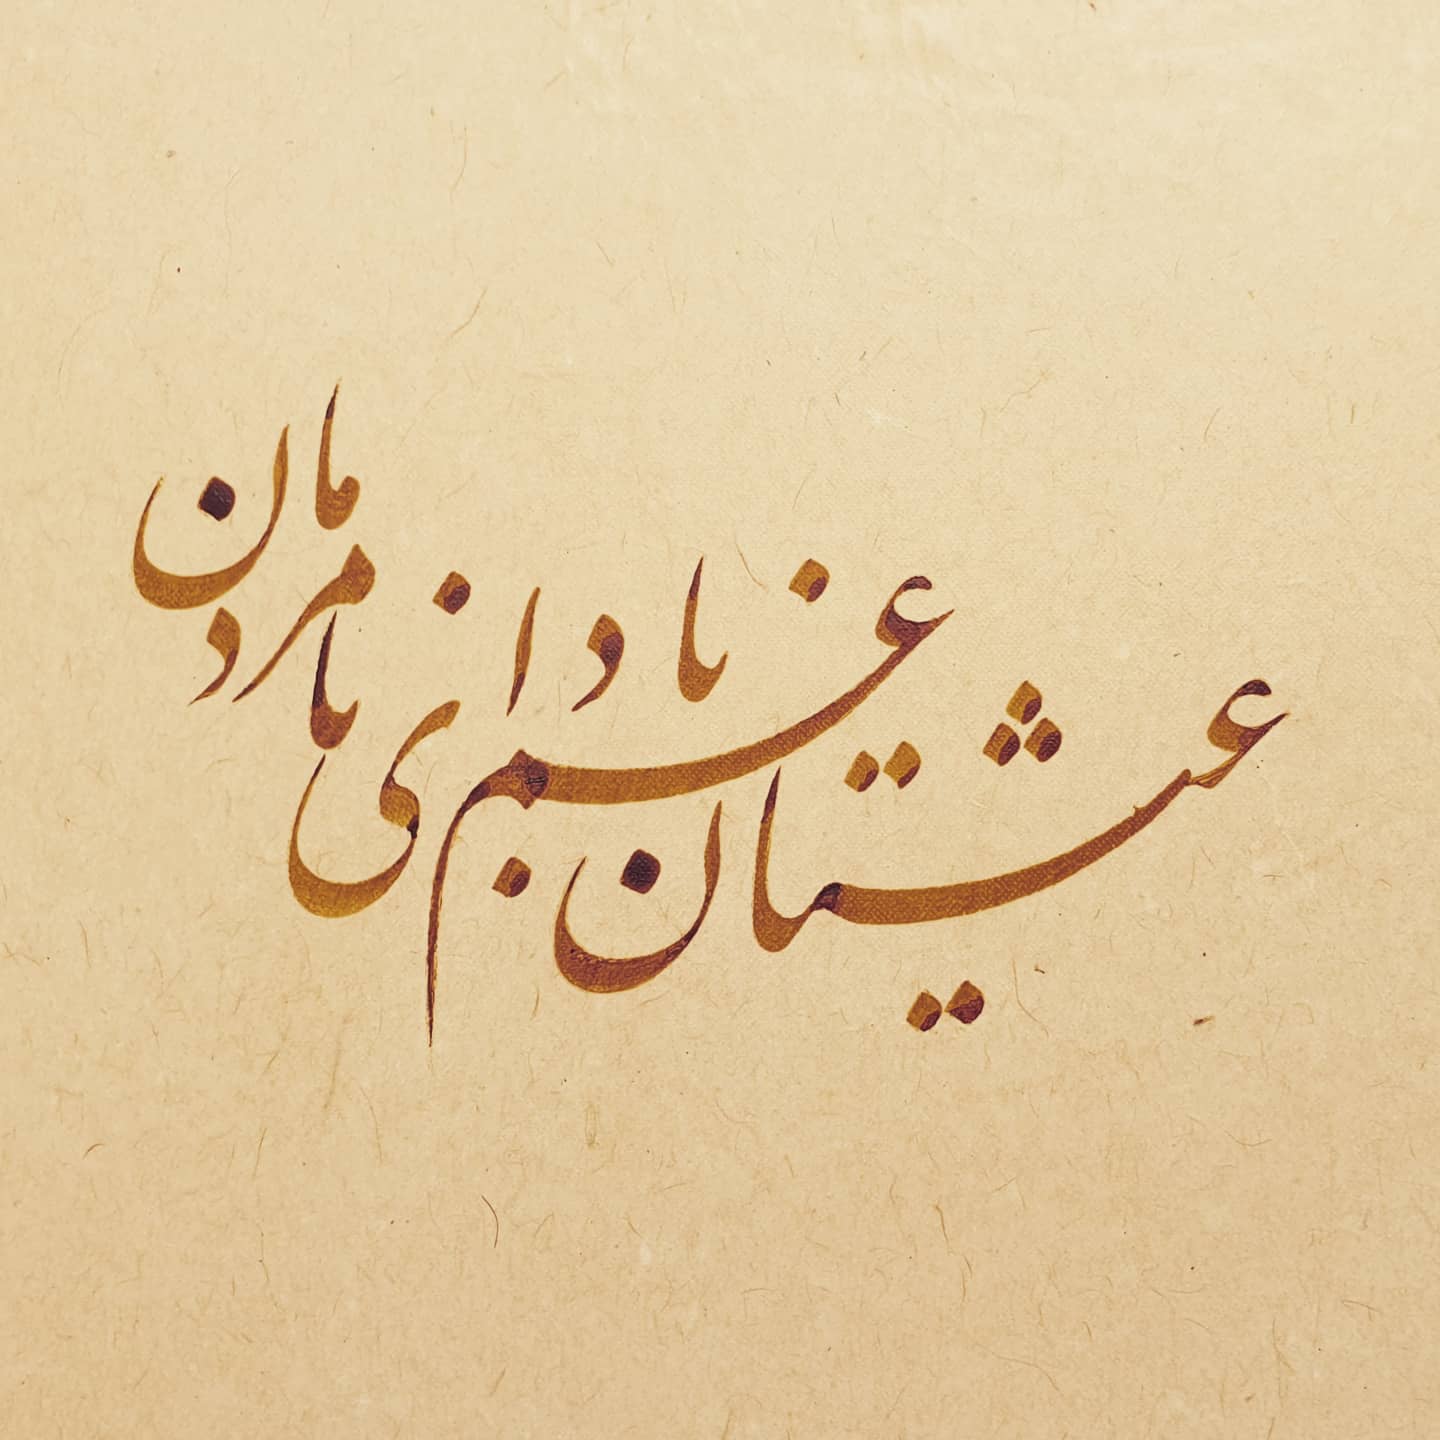 عیشتان غم باد ای نامردمان